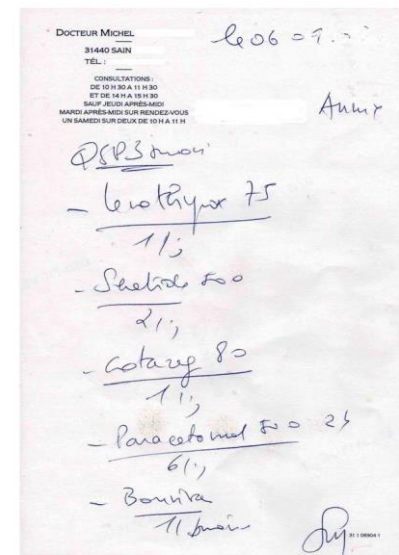 DOCTEUR MICHEL
le 06 - 09
31440 SAIN
TÉL. :
CONSULTATIONS :
DE 10 H 30 A 11 H 30
ET DE 14 H A 15 H 30
SAUF JEUDI APRÈS-MIDI
MARDI APRÈS-MIDI SUR RENDEZ-VOUS
UN SAMEDI SUR DEUX DE 10 H A 11 H
QSP 3 mois
- levothyrox 75
1/j
500
2/j
- Cotareg 80
1/j
- Paracetamol 500
6/j
- Bonviva
1/mois